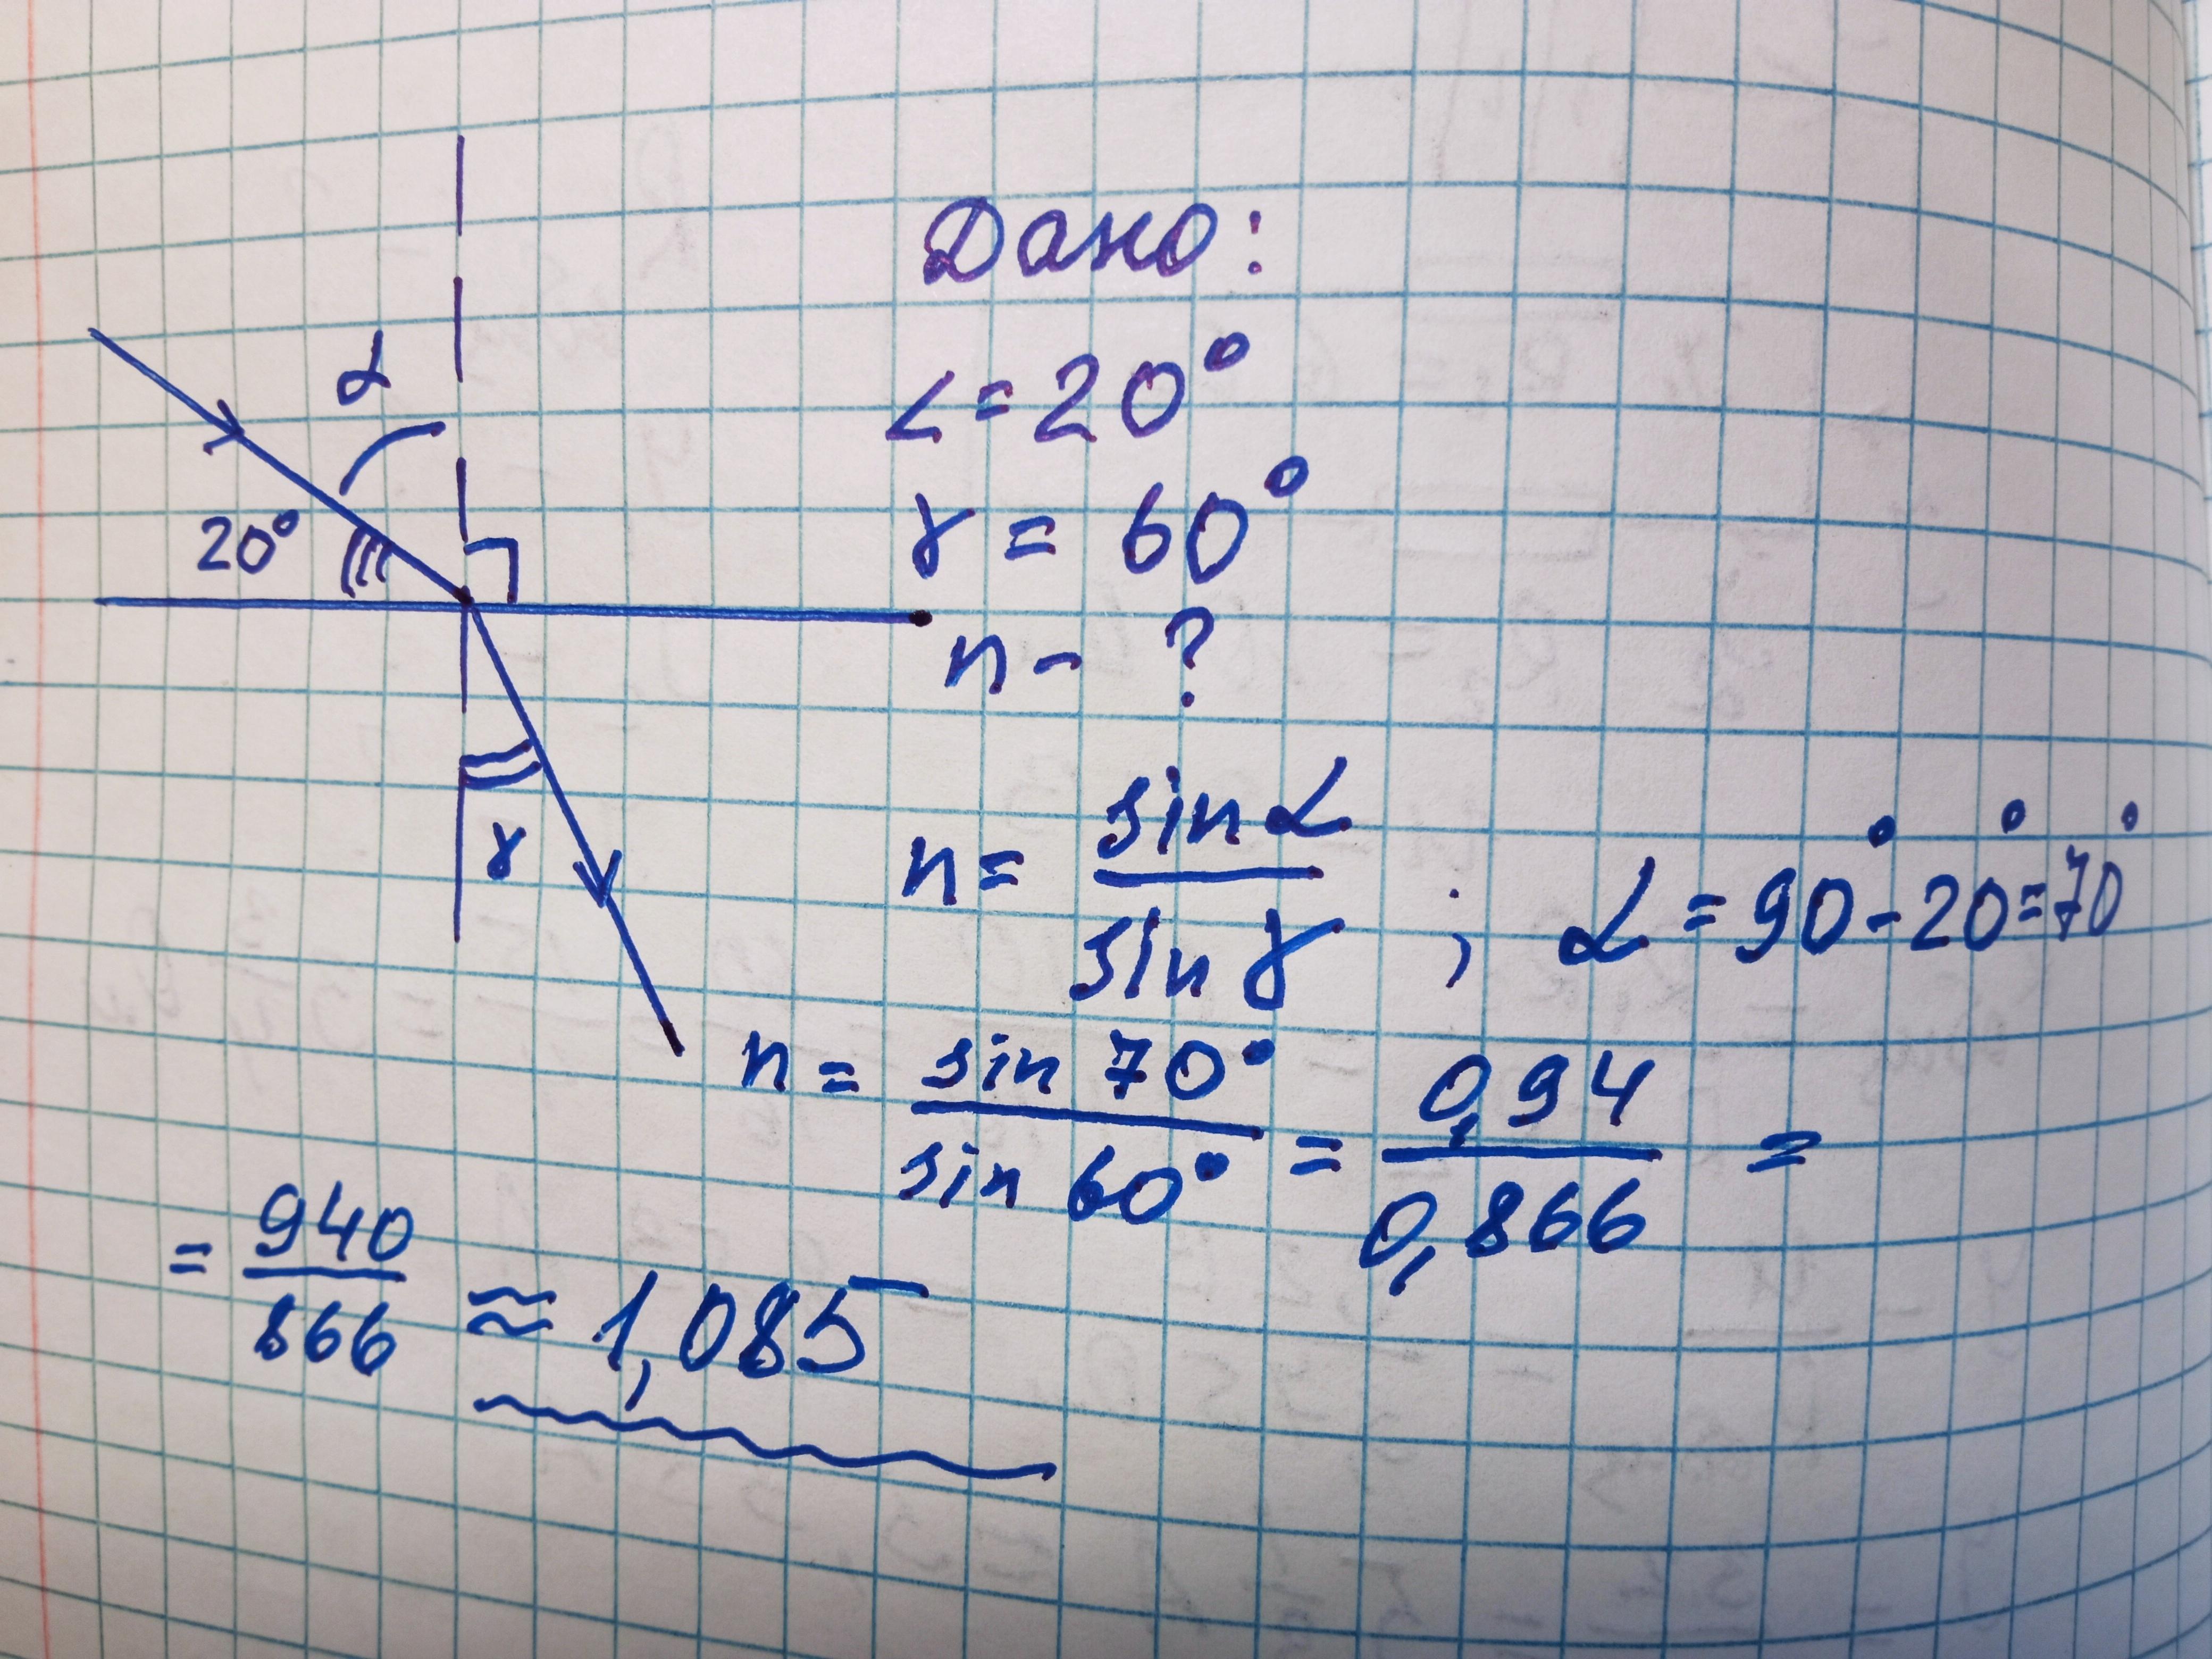 Дано:
∠ = 20°
γ = 60°
n - ?
α
20°
γ
n = sin α / sin γ ; α = 90° - 20° = 70°
n = sin 70° / sin 60° = 0,94 / 0,866 =
= 940 / 866 ≈ 1,085